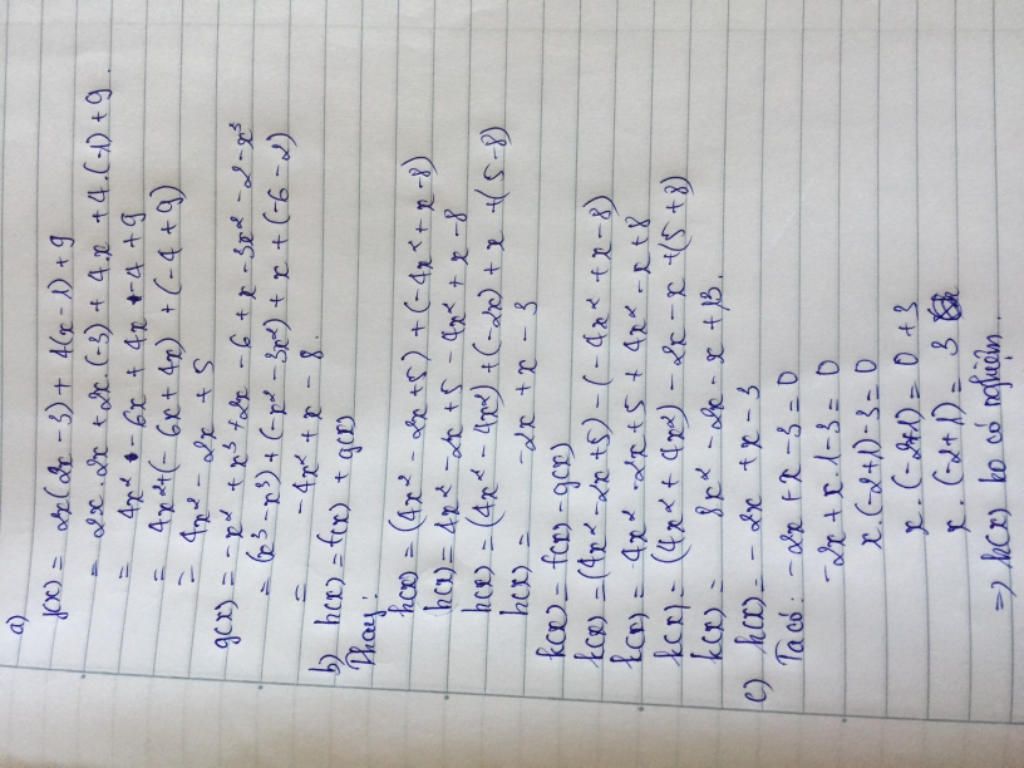 a)
f(x) = 2x(2x - 3) + 4(x - 1) + 9
= 2x . 2x + 2x . (-3) + 4 . x + 4 . (-1) + 9
= 4x² - 6x + 4x - 4 + 9
= 4x² + (- 6x + 4x) + (-4 + 9)
= 4x² - 2x + 5
g(x) = -x² + x³ + 2x - 6 + x - 3x² - 2 - x³
= (x³ - x³) + (-x² - 3x²) + x + (-6 - 2)
= -4x² + x - 8.
b) h(x) = f(x) + g(x)
Thay:
h(x) = (4x² - 2x + 5) + (-4x² + x - 8)
h(x) = 4x² - 2x + 5 - 4x² + x - 8
h(x) = (4x² - 4x²) + (-2x) + x + (5 - 8)
h(x) = -2x + x - 3
k(x) = f(x) - g(x)
k(x) = (4x² - 2x + 5) - (-4x² + x - 8)
k(x) = 4x² - 2x + 5 + 4x² - x + 8
k(x) = (4x² + 4x²) - 2x - x + (5 + 8)
k(x) = 8x² - 2x - x + 13.
c) h(x) = -2x + x - 3
Ta có: -2x + x - 3 = 0
-2x + x . 1 - 3 = 0
x . (-2 + 1) - 3 = 0
x . (-2 + 1) = 0 + 3
x . (-2 + 1) = 3
=> h(x) ko có nghiệm.